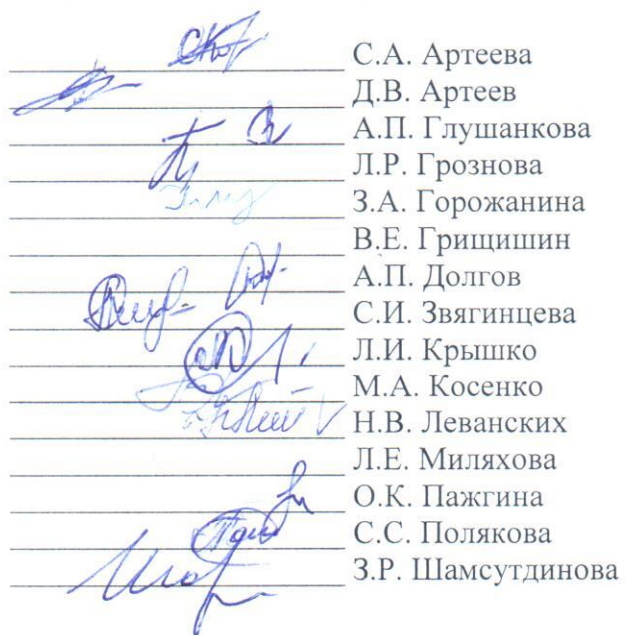 С.А. Артеева
Д.В. Артеев
А.П. Глушанкова
Л.Р. Грознова
З.А. Горожанина
В.Е. Грищишин
А.П. Долгов
С.И. Звягинцева
Л.И. Крышко
М.А. Косенко
Н.В. Леванских
Л.Е. Миляхова
О.К. Пажгина
С.С. Полякова
З.Р. Шамсутдинова